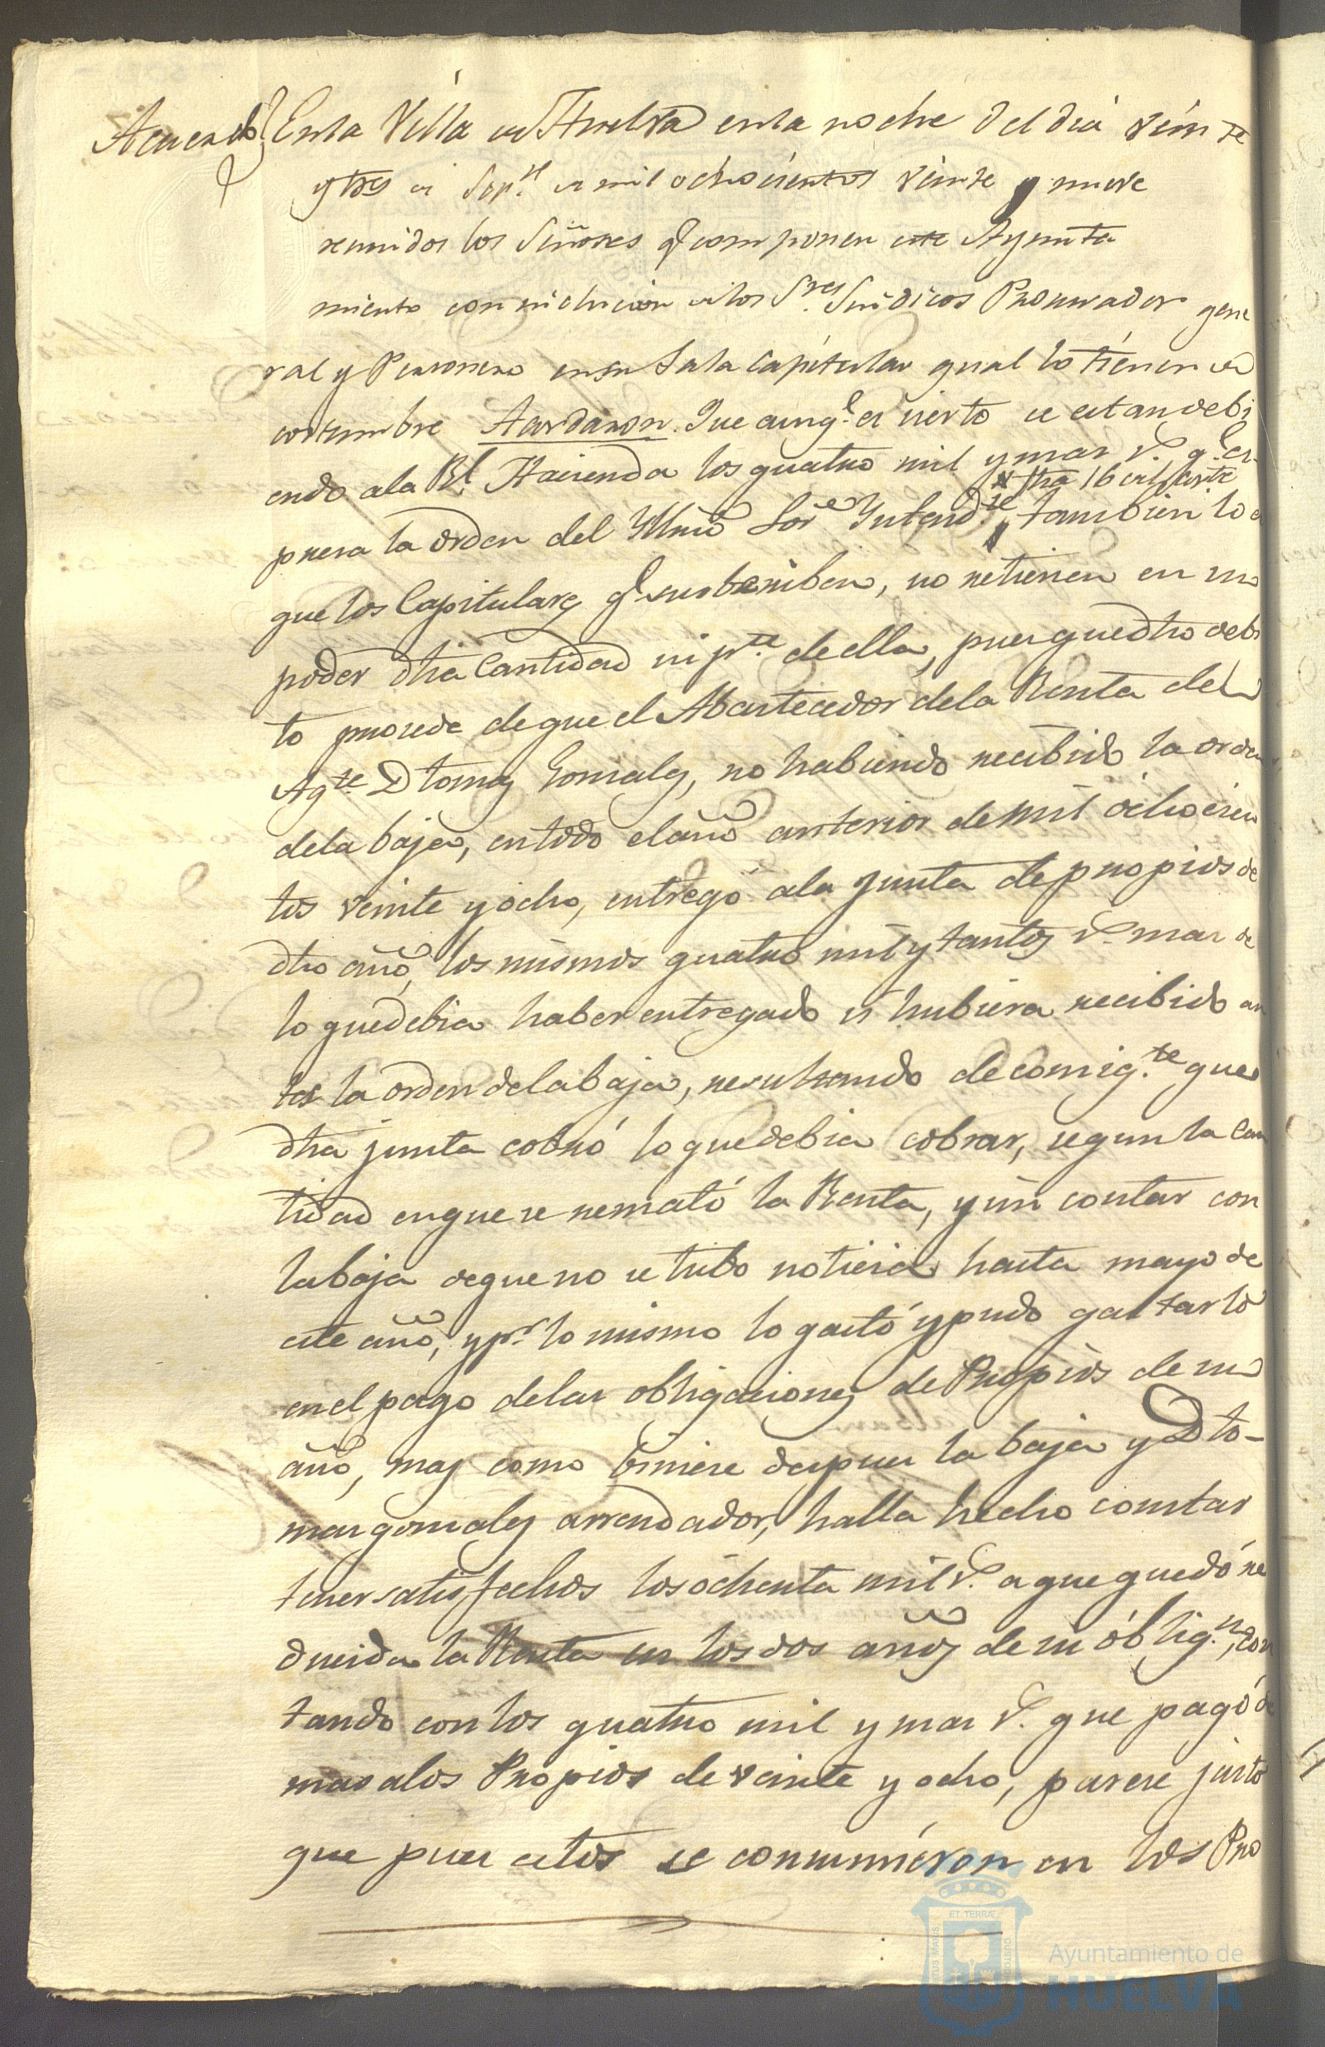 Acuerdo En la Villa de Huelva en la noche del dia veinte
y tres de Sepre. de mil ochocientos veinte y nueve
reunidos los Señores q componen este Ayunta
miento con inclusion de los Sres. Sindicos Procurador gene
ral y Personero en su Sala Capitular qual lo tienen de
costumbre Acordaron. Que aunq. es cierto se estan debi
endo a la Rl. Hacienda los quatro mil y mas rs. q. es
fha 16 del corrte
presa la orden del Yllmo Sor. Yntendte., tambien lo es
que los Capitulares q subscriben, no retienen en su
poder dha Cantidad ni pte. de ella, pues que dho debi
to procede de que el Abastecedor de la Renta del
Agte. D Tomas Gonzales, no habiendo recibido la orden
de la baja, en todo el año anterior de mil ochocien
tos veinte y ocho, entregó a la Junta de propios de
dho año, los mismos quatro mil y tantos rs. mas de
lo que debia haber entregado si hubiera recibido an
tes la orden de la baja, resultando de consigte. que
dha junta cobró lo que debia cobrar, segun la Can
tidad en que se remató la Renta, y sin contar con
la baja de que no se tubo noticia hasta mayo de
este año, y pr. lo mismo lo gastó y pudo gastarlo
en el pago de las obligaciones de Propios de su
año, mas como biniese despues la baja y D To-
mas gonzales arrendador, halla hecho constar
tener satisfechos los ochenta mil rs. a que quedó re
ducida la Renta en los dos años de su obligon., con
tando con los quatro mil y mas rs. que pagó de
mas a los Propios de veinte y ocho, parese justo
que pues estos se consumieron en los Pro
Ayuntamiento de
HUELVA
ET TERRAE